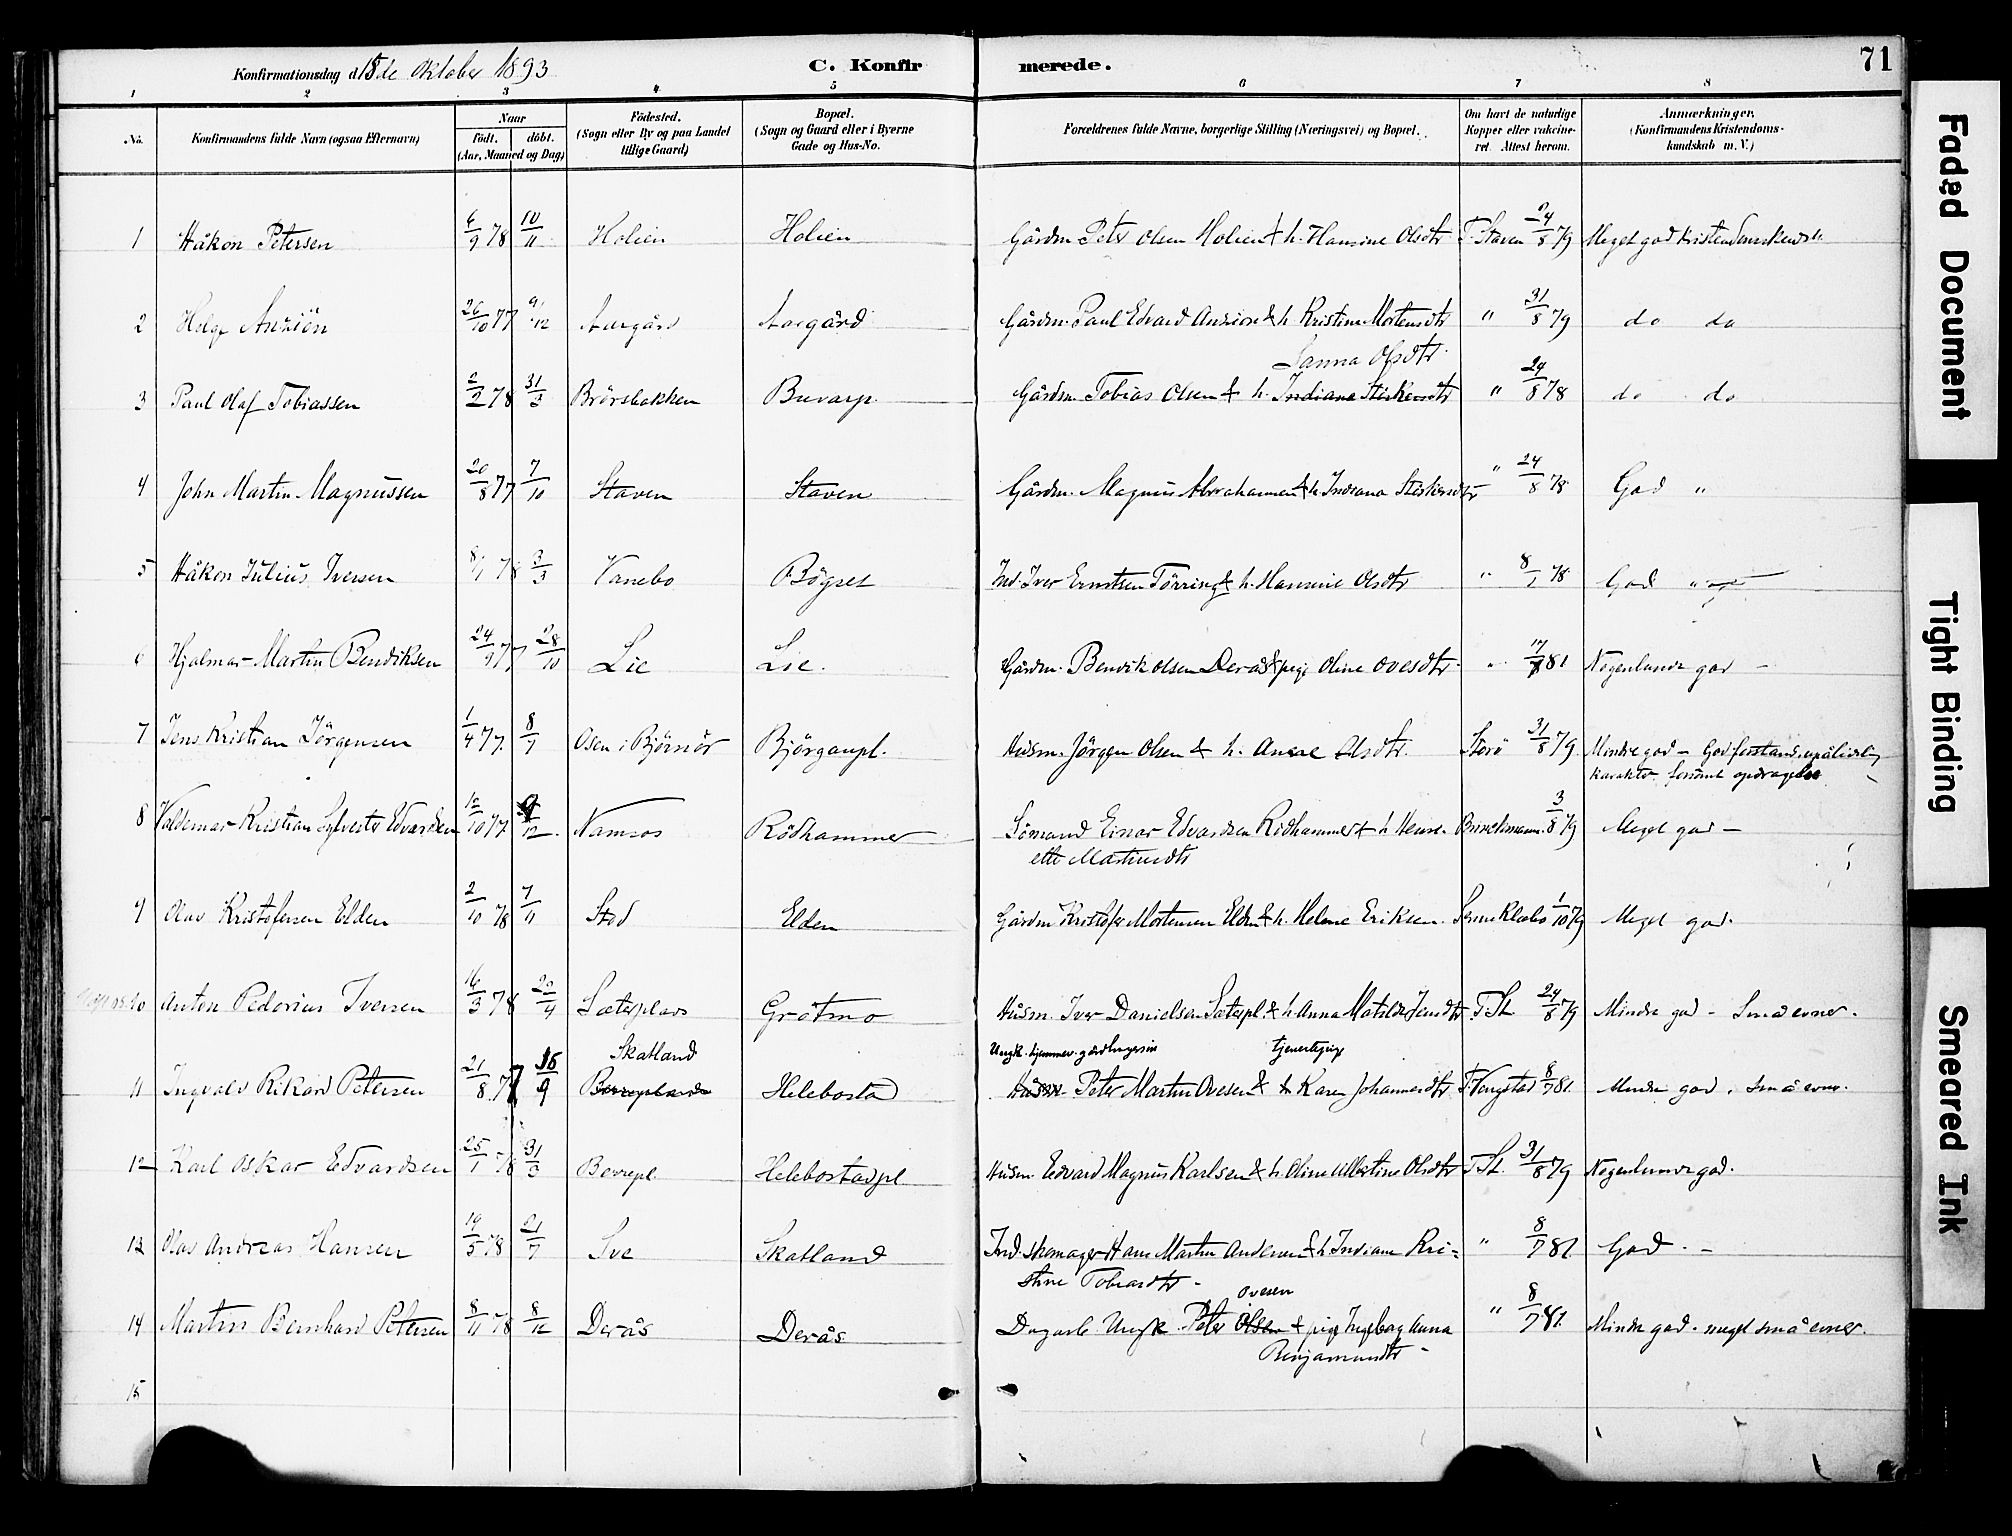 Konfirmationsdag d. 15de Oktober 1893
C. Konfirmerede.
71
1 2 3 4 5 6 7 8
No.
Konfirmandens fulde Navn (ogsaa Efternavn)
Naar
Födt. döbt.
(Aar, Maaned og Dag)
Födested.
(Sogn eller By og paa Landet
tillige Gaard)
Bopæl.
(Sogn og Gaard eller i Byerne
Gade og Hus-No.
Forældrenes fulde Navne, borgerlige Stilling (Næringsvei) og Bopæl.
Om havt de naturlige
Kopper eller vakcine-
ret. Attest herom.
Anmærkninger.
(Konfirmandens Kristendoms-
kundskab m. V.)
1 Håkon Petersen 6/9 78 10/11 Holien Holien Gårdm. Peter Olsen Holien & h. Hansine Olsdtr T. Staven 24/8 79 Meget god
2 Helge Anzion 26/10 77 9/12 Aargård Aargård Gårdm. Paul Edvard Anzion & h. Kristine Mortensdtr " 31/8 79 do do
Sanna Olsdtr.
3 Paul Olaf Tobiassen 2/2 78 31/3 Brörsbakken Buvarp Gårdm. Tobias Olsen & h. Indiana " 24/8 78 do do
4 John Martin Magnussen 20/8 77 7/10 Staven Staven Gårdm. Magnus Abrahamsen & h. Indiana " 24/8 78 God "
5 Håkon Julius Iversen 8/1 78 3/3 Vanebo Bögset Ind. Iver Erntsen Törring & h. Hansine Olsdtr " 8/ 78 God "
6 Hjalmar Martin Bendiksen 24/9 77 28/10 Lie Lie. Gårdm. Bendik Olsen Derås & pige Oline Ovesdtr. " 81 Nogenlunde god -
7 Jens Kristian Jörgensen 1/4 77. 8/7 Osen i Björnör Björganpl. Husm. Jörgen Olsen & h. Olsdtr. 31/8 79 Mindre god - God forstand, upålidelig
karakter, forsömt opdragelse
8 Valdemar Kristian Sylvester Edvardsen 12/10 77. 9/12 Namsos Rödhammer Sömand Einar Edvardsen Rödhammer & h. Henri- 3/8 79 Meget god -
ette Martinsdtr
9 Olav Kristofersen Elden 2/10 78 7/11 Stod Elden Gårdm. Kristofer Mortensen Elden & h. Helene Eriksen. 1/10 79 Meget god.
10 Anton Pedorius Iversen 16/3 78 22/4 Sæterplads Grötmo Husm. Iver Danielsen Sæterpl. & h. Anna Matilde Jensdtr. T. St. 24/8 79 Mindre god - Små evner.
Skatland tjenestepige
11 Ingvald Rikard Petersen 21/8 77 16/9 Helebostad Husm. Peter Martin Ovesen & h Karen Johannesdtr T. Vengstad 8/7 81. Mindre god. Små evner.
12 Karl Oskar Edvardsen 25/1 78 31/3 Berrepl. Helebostadpl. Husm. Edvard Magnus Karlsen & h. Oline Albertine Olsdtr T. St. 31/8 79 Nogenlunde god.
13 Olav Andreas Hansen 19/5 78 21/7 Sve Skatland Ind. skomager Hans Martin Andersen & h Indiane Kri-
stine Tobiasdtr - " 8/7 81. God. -
Ovesen
14 Martin Bernhard Petersen 8/11 78 8/12 Derås Derås Dagarb. Ungk. Peter Olsen & pige Ingeborg Anna
Benjaminsdtr - " 8/7 81. Mindre god - meget små evner.
15
Faded Document
Tight Binding
Smeared Ink